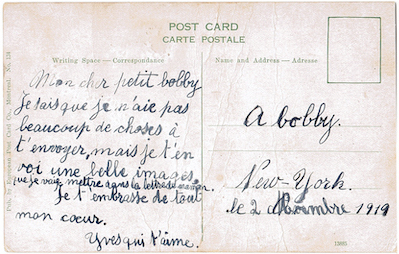 POST CARD
CARTE POSTALE
Writing Space — Correspondance
Name and Address — Adresse
Pub. by European Post Card Co., Montreal. No. 124
Mon cher petit bobby
Je sais que je n'aie pas
beaucoup de choses à
t'envoyer, mais je t'en
voi une belle images
que je vais mettre dans la lettre de maman.
Je t'embrasse de tout
mon cœur.
Yves qui t'aime.
A bobby.
New-York.
le 2 Novembre 1919